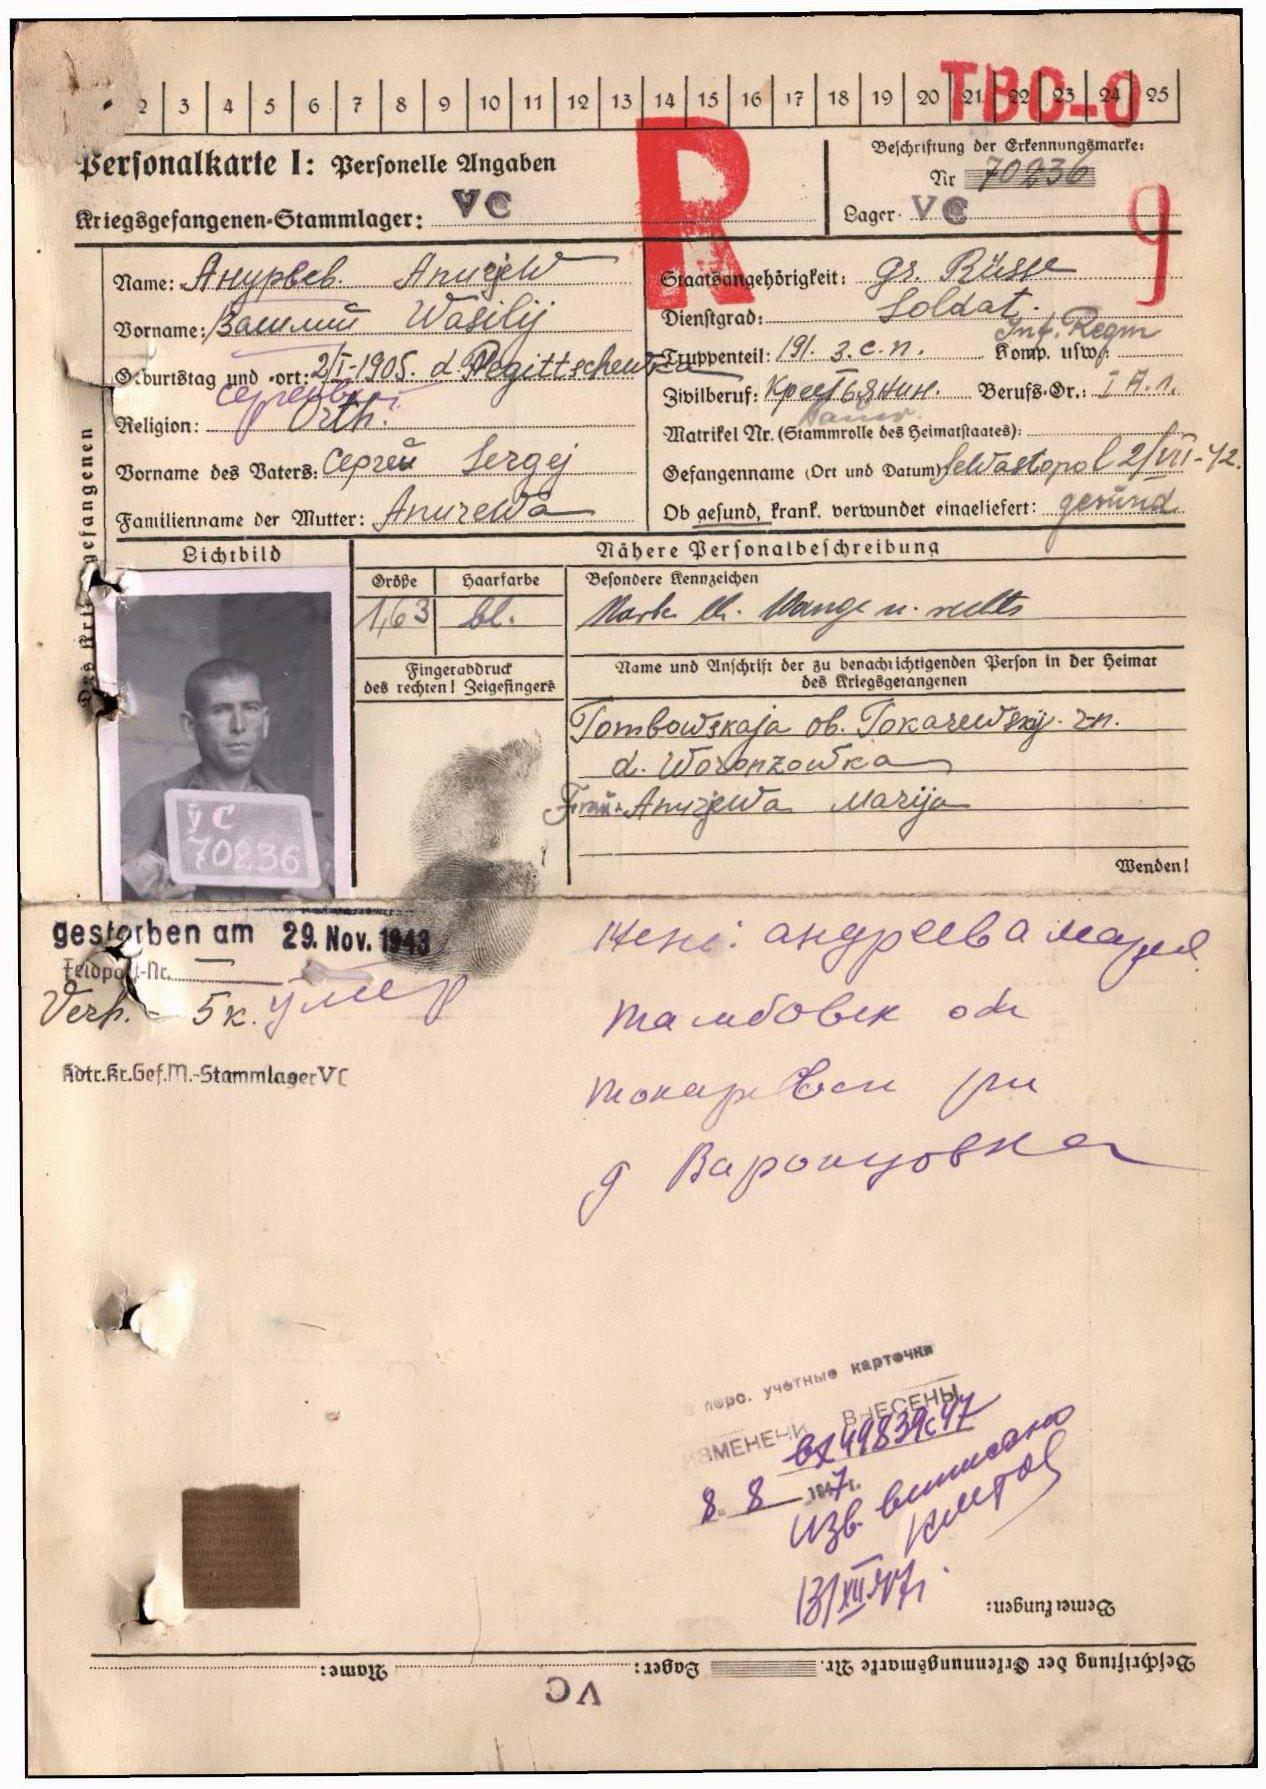 2 3 4 5 6 7 8 9 10 11 12 13 14 15 16 17 18 19 20 21 22 23 24 25
TBO-0
Personalkarte I: Personelle Angaben
Kriegsgefangenen-Stammlager: VC
R
Beschriftung der Erkennungsmarke:
Nr 70236
Lager: VC
9
Des Kriegsgefangenen
Name: Анурьев. Anurjew
Vorname: Василий Wasilij
Geburtstag und -ort: 2/I-1905. d.
Сергеевич
Religion: Orth.
Vorname des Vaters: Сергей Sergej
Familienname der Mutter: Anurewa
Staatsangehörigkeit: gr. Russe
Dienstgrad: Soldat.
Inf. Regm
Truppenteil: 191. з.с.п. Komp. usw.:
Zivilberuf: Крестьянин. Berufs-Gr.: I A.1.
Bauer.
Matrikel Nr. (Stammrolle des Heimatstaates):
Gefangenname (Ort und Datum): Sewastopol 2/VII-42.
Ob gesund, krank, verwundet eingeliefert: gesund
Lichtbild
Nähere Personalbeschreibung
Größe Haarfarbe Besondere Kennzeichen
1,63 bl. Narbe lk. Wange u. rechts
Fingerabdruck
des rechten! Zeigefingers
Name und Anschrift der zu benachrichtigenden Person in der Heimat
des Kriegsgefangenen
Tombowskaja ob. Tokarewskij. rn.
d. Woronzowka
Frau: Anurjewa Marija
VC
70236
Wenden!
gestorben am 29. Nov. 1943
Feldpost-Nr.
Verp. - 5к. умер
Kdtr.Kr.Gef.M.-Stammlager VC
жена: андреева мария
тамбовск об
токарев рн
д Варонцовка
перс. учетные карточки
ИЗМЕНЕНИ ВНЕСЕНЫ
вх 49839с47
8. 8 1947г.
изв. выписано
13/XII.47г.
Bemerkungen:
Beschriftung der Erkennungsmarke Nr. Lager: Name:
VC